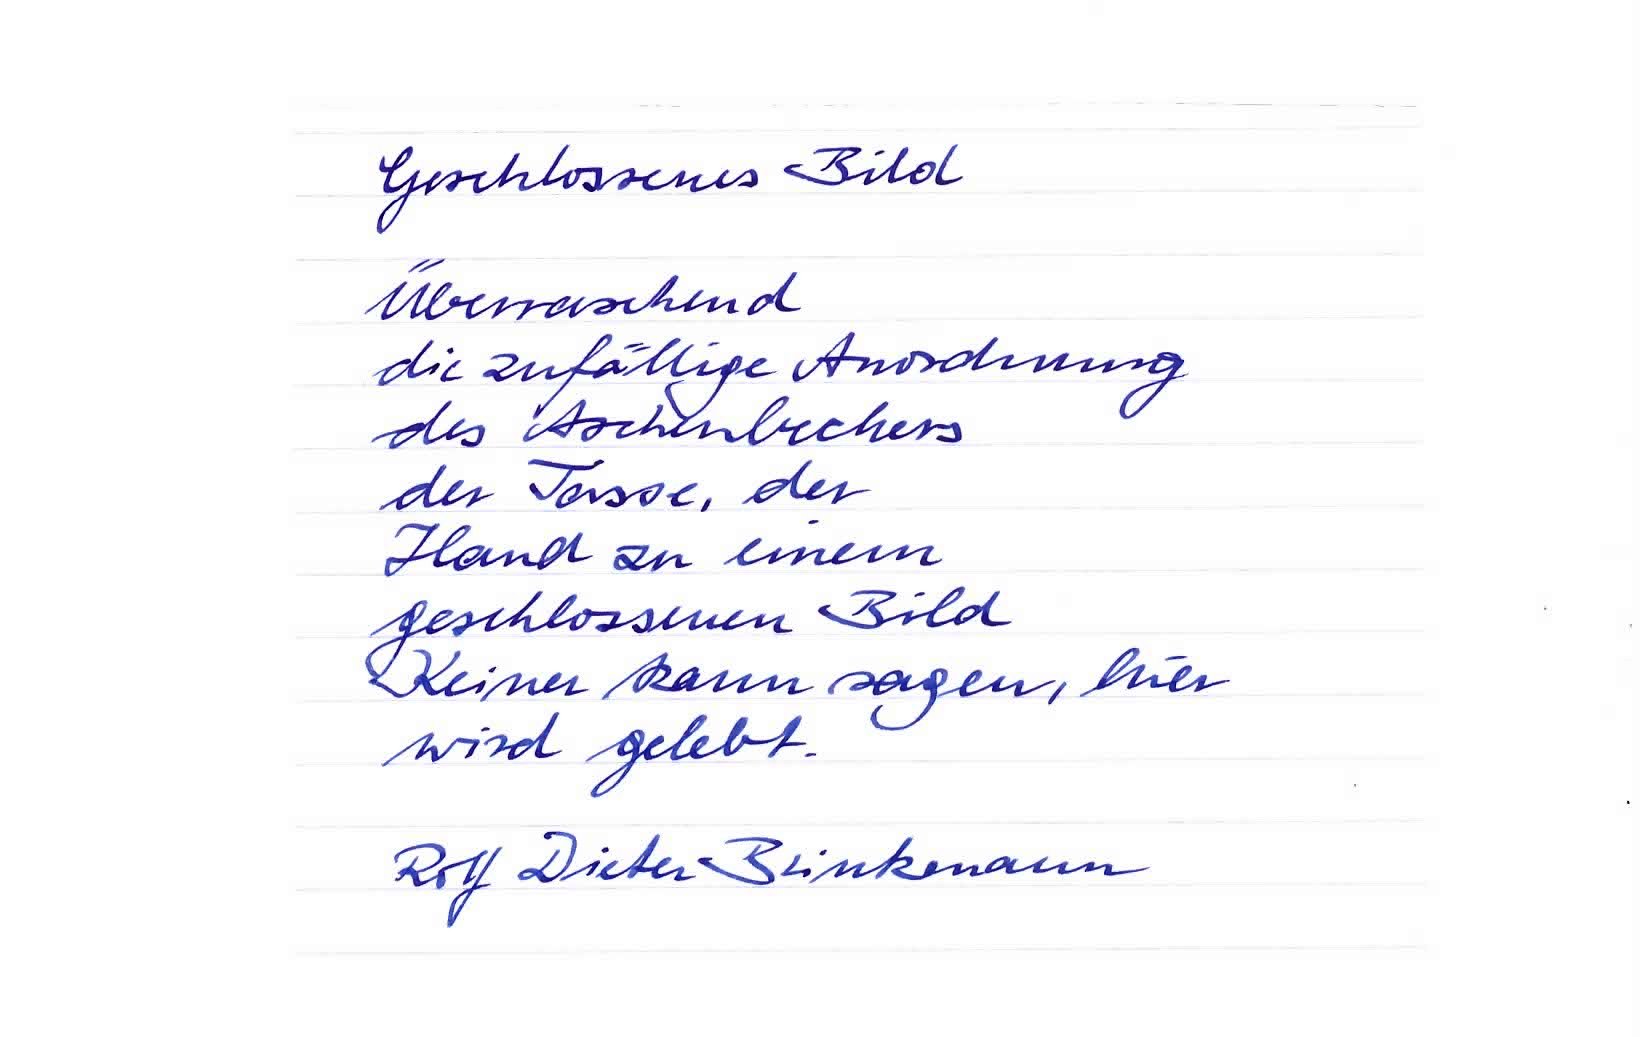 Geschlossenes Bild
Überraschend
die zufällige Anordnung
des Aschenbechers
der Tasse, der
Hand zu einem
geschlossenen Bild
Keiner kann sagen, hier
wird gelebt.
Rolf Dieter Brinkmann